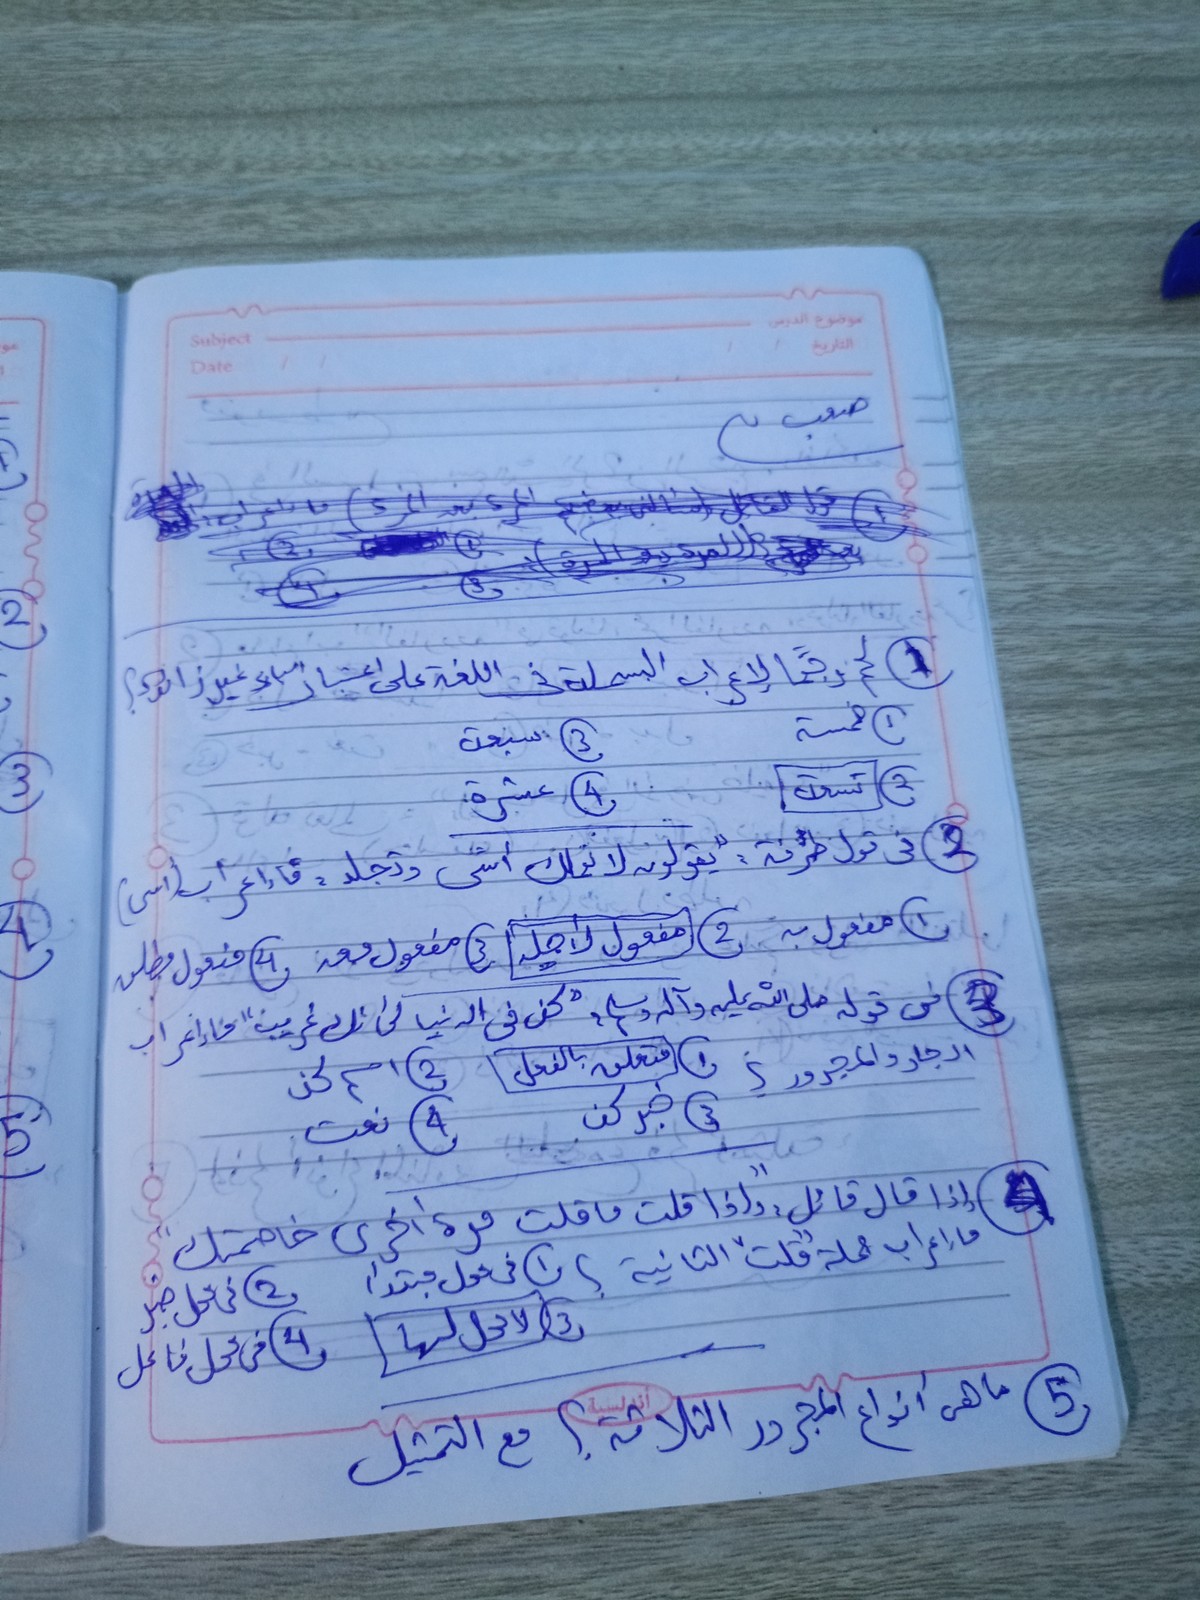 موضوع الدرس
Subject
التاريخ / /
Date / /
صعب
1 كم وجهًا لإعراب البسملة في اللغة على اعتبار الباء غير زائدة؟
1 خمسة 3 سبعة
2 تسعة 4 عشرة
2 في قول طرفة: "يقولون لا تهلك أسًى وتجلد، ما إعراب (أسى)
1 مفعول به 2 مفعول لأجله 3 مفعول معه 4 مفعول مطلق
3 في قوله صلى الله عليه وآله وسلم: "كن في الدنيا كأنك غريب" ما إعراب
الجار والمجرور؟ 1 متعلق بالفعل 2 اسم كن
3 خبر كن 4 نعت
4 إذا قال قائل: "وإذا قلت ما قلت مرة أخرى خاصمتك"
ما إعراب جملة "قلت" الثانية؟ 1 في محل مبتدأ 2 في محل خبر
3 لا محل لها 4 في محل فاعل
5 ما هي أنواع المجرور الثلاثة؟ مع التمثيل
1
2
3
4
5